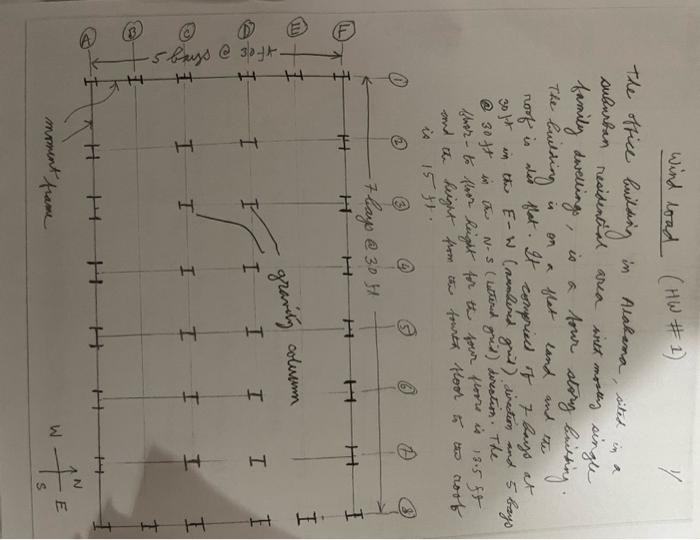 Wind load (HW # 1)
1/
The office building in Alabama, sited in a
suburban residential area with mostly single
family dwellings, is a four story building.
The building is on a flat land and the
roof is also flat. It comprised of 7 bays at
30 ft in the E-W (numbered grid) direction and 5 bays
@ 30 ft in the N-S (lettered grid) direction. The
floor-to floor height for the four floors is 13.5 ft
and the height from the fourth floor to the roof
is 15 ft.
7 bays @ 30 ft
1 2 3 4 5 6 7 8
F
E
D
C
B
A
5 bays @ 30 ft
gravity column
moment frame
N
W E
S